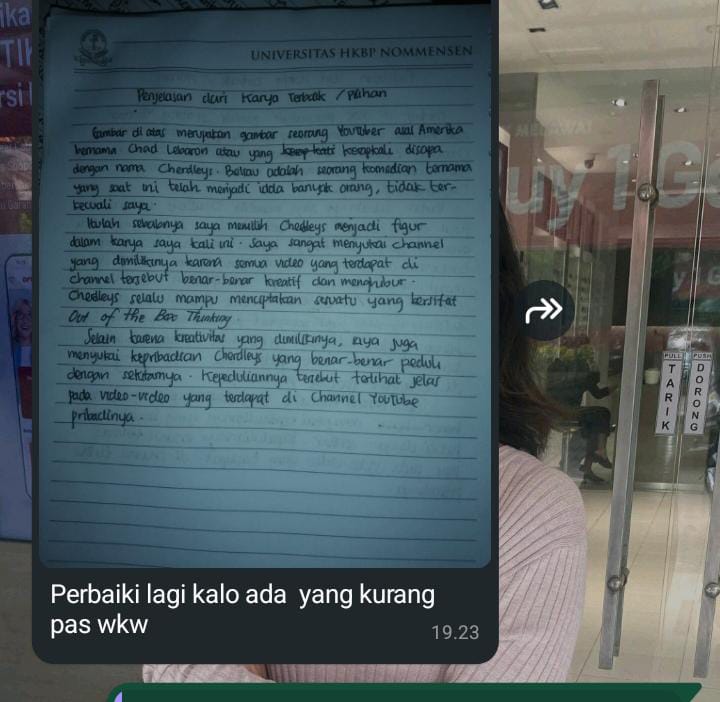 UNIVERSITAS HKBP NOMMENSEN
Penjelasan dari Karya Terbaik / Pilihan
Gambar di atas merupakan gambar seorang YouTuber asal Amerika
bernama Chad Lebaron atau yang kerap kali disapa
dengan nama Cherdleys. Beliau adalah seorang komedian ternama
yang saat ini telah menjadi idola banyak orang, tidak ter-
kecuali saya.
Itulah sebabnya saya memilih Chedleys menjadi figur
dalam karya saya kali ini. Saya sangat menyukai channel
yang dimilikinya karena semua video yang terdapat di
channel tersebut benar-benar kreatif dan menghibur.
Cherdleys selalu mampu menciptakan suatu yang bersifat
Out of the Box Thinking.
Selain karena kreativitas yang dimilikinya, saya juga
menyukai kepribadian Cherdleys yang benar-benar peduli
dengan sekitarnya. Kepeduliannya tersebut terlihat jelas
pada video-video yang terdapat di Channel YouTube
pribadinya.
Perbaiki lagi kalo ada yang kurang
pas wkw
19.23
PULL
TARIK
PUSH
DORONG